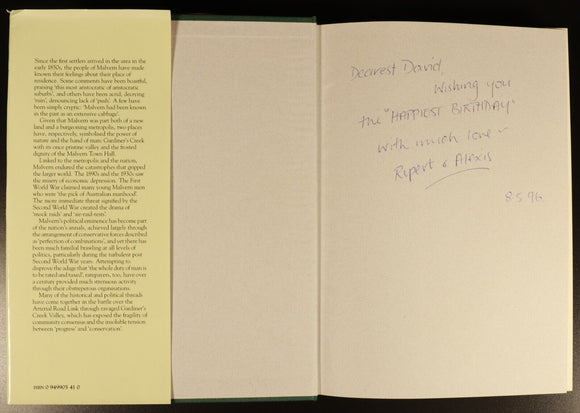 Since the first settlers arrived in the area in the
early 1850s, the people of Malvern have made
known their feelings about their place of
residence. Some comments have been boastful,
praising 'this most aristocratic of aristocratic
suburbs', and others have been acrid, decrying
'ruin', denouncing lack of 'push'. A few have
been simply cryptic: 'Malvern had been known
in the past as an extensive cabbage'.
Given that Malvern was part both of a new
land and a burgeoning metropolis, two places
have, respectively, symbolised the power of
nature and the hand of man: Gardiner's Creek
with its once pristine valley and the frosted
dignity of the Malvern Town Hall.
Linked to the metropolis and the nation,
Malvern endured the catastrophes that gripped
the larger world. The 1890s and the 1930s saw
the misery of economic depression. The First
World War claimed many young Malvern men
who were 'the pick of Australian manhood'.
The more immediate threat signified by the
Second World War created the drama of
'mock raids' and 'air-raid-tests'.
Malvern's political eminence has become part
of the nation's annals, achieved largely through
the arrangement of conservative forces described
as 'perfection of combinations', and yet there has
been much familial brawling at all levels of
politics, particularly during the turbulent post
Second World War years. Attempting to
disprove the adage that 'the whole duty of man is
to be rated and taxed', ratepayers, too, have over
a century provided much strenuous activity
through their obstreperous organisations.
Many of the historical and political threads
have come together in the battle over the
Arterial Road Link through ravaged Gardiner's
Creek Valley, which has exposed the fragility of
community consensus and the insoluble tension
between 'progress' and 'conservation'.
ISBN 0 949903 41 0
Dearest David,
Wishing you
the "HAPPIEST BIRTHDAY"
with much love -
Rupert & Alexis
8.5.96